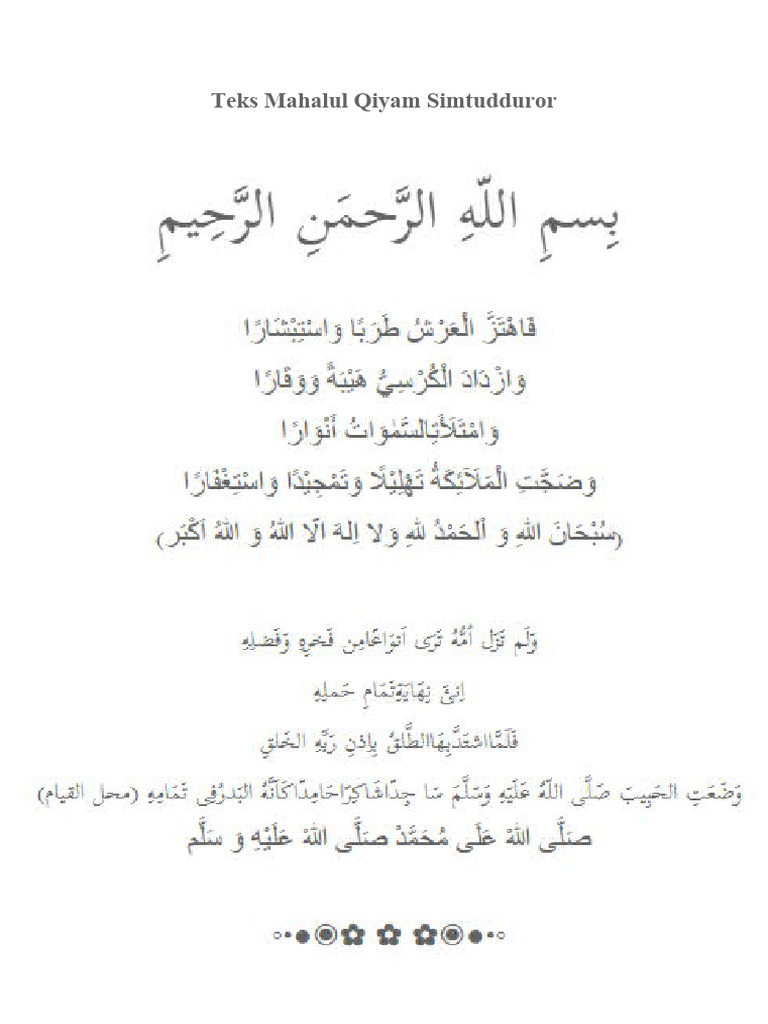 Teks Mahalul Qiyam Simtudduror
بِسمِ اللّهِ الرَّحمَنِ الرَّحِيمِ
فَاهْتَزَّ الْعَرْشُ طَرَبًا وَاسْتِبْشَارًا
وَازْدَادَ الْكُرْسِيُّ هَيْبَةً وَوَقَارًا
وَامْتَلَأَتِالسَّمٰوَاتُ أَنْوَارًا
وَضَجَّتِ الْمَلَآئِكَةُ تَهْلِيْلًا وَتَمْجِيْدًا وَاسْتِغْفَارًا
(سُبْحَانَ اللهِ وَ اْلحَمْدُ للهِ وَلا اِلهَ اِلّا اللهُ وَ اللهُ اَكْبَر)
وَلَم تَزَل اُمُّهُ تَرَى اَنوَاعًامِن فَخرِهِ وَفَضلِهِ
اِلىَ نِهَايَةِتَمَامِ حَملِهِ
فَلَمَّااشتَدَّبِهَاالطَّلقُ بِاِذنِ رَبِّهِ الخَلقِ
وَضَعَتِ الحَبِيبَ صَلَّى اللّهُ عَلَيهِ وَسَلَّمَ سَا جِدًاشَاكِرًاحَامِدًاكَاَنَّهُ البَدرُفِى تَمَامِهِ (محل القيام)
صَلَّى اللهْ عَلَى مُحَمَّدْ صَلَّى اللهْ عَلَيْهِ وَ سَلَّم